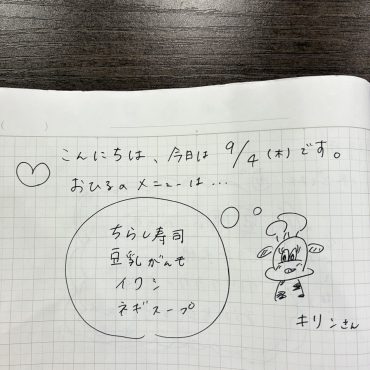 こんにちは、今日は9/4(木)です。
おひるのメニューは...
ちらし寿司
豆乳がんも
イワシ
ネギスープ
キリンさん